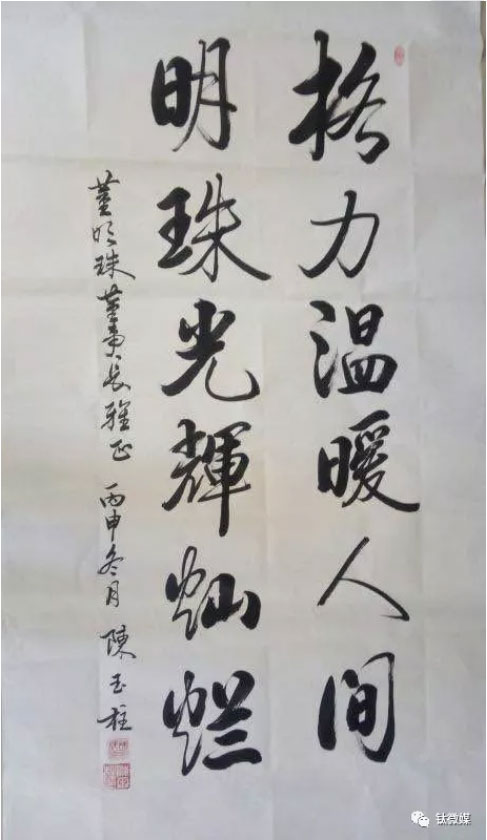 格力温暖人间
明珠光輝灿烂
董明珠董事长雅正 丙申冬月 陳玉柱
钛微媒